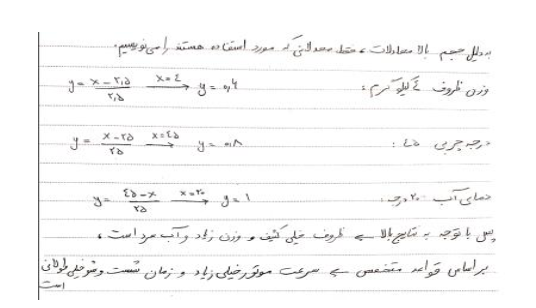 به دلیل حجم بالا معادلات، فقط معادلاتی که مورد استفاده هستند را می نویسیم.
وزن ظروف ۴ کیلوگرم: y = (x - ۲,۵) / ۲,۵ → (x=۴) y = ۰,۶
درجه چربی ۴۵: y = (x - ۲۵) / ۲۵ → (x=۴۵) y = ۰,۸
دمای آب ۲۰ درجه: y = (۴۵ - x) / ۲۵ → (x=۲۰) y = ۱
پس با توجه به نتایج بالا ظروف خیلی کثیف و وزن زیاد و آب سرد است،
بر اساس قواعد مشخص سرعت موتور خیلی زیاد و زمان شست و شو خیلی طولانی
است